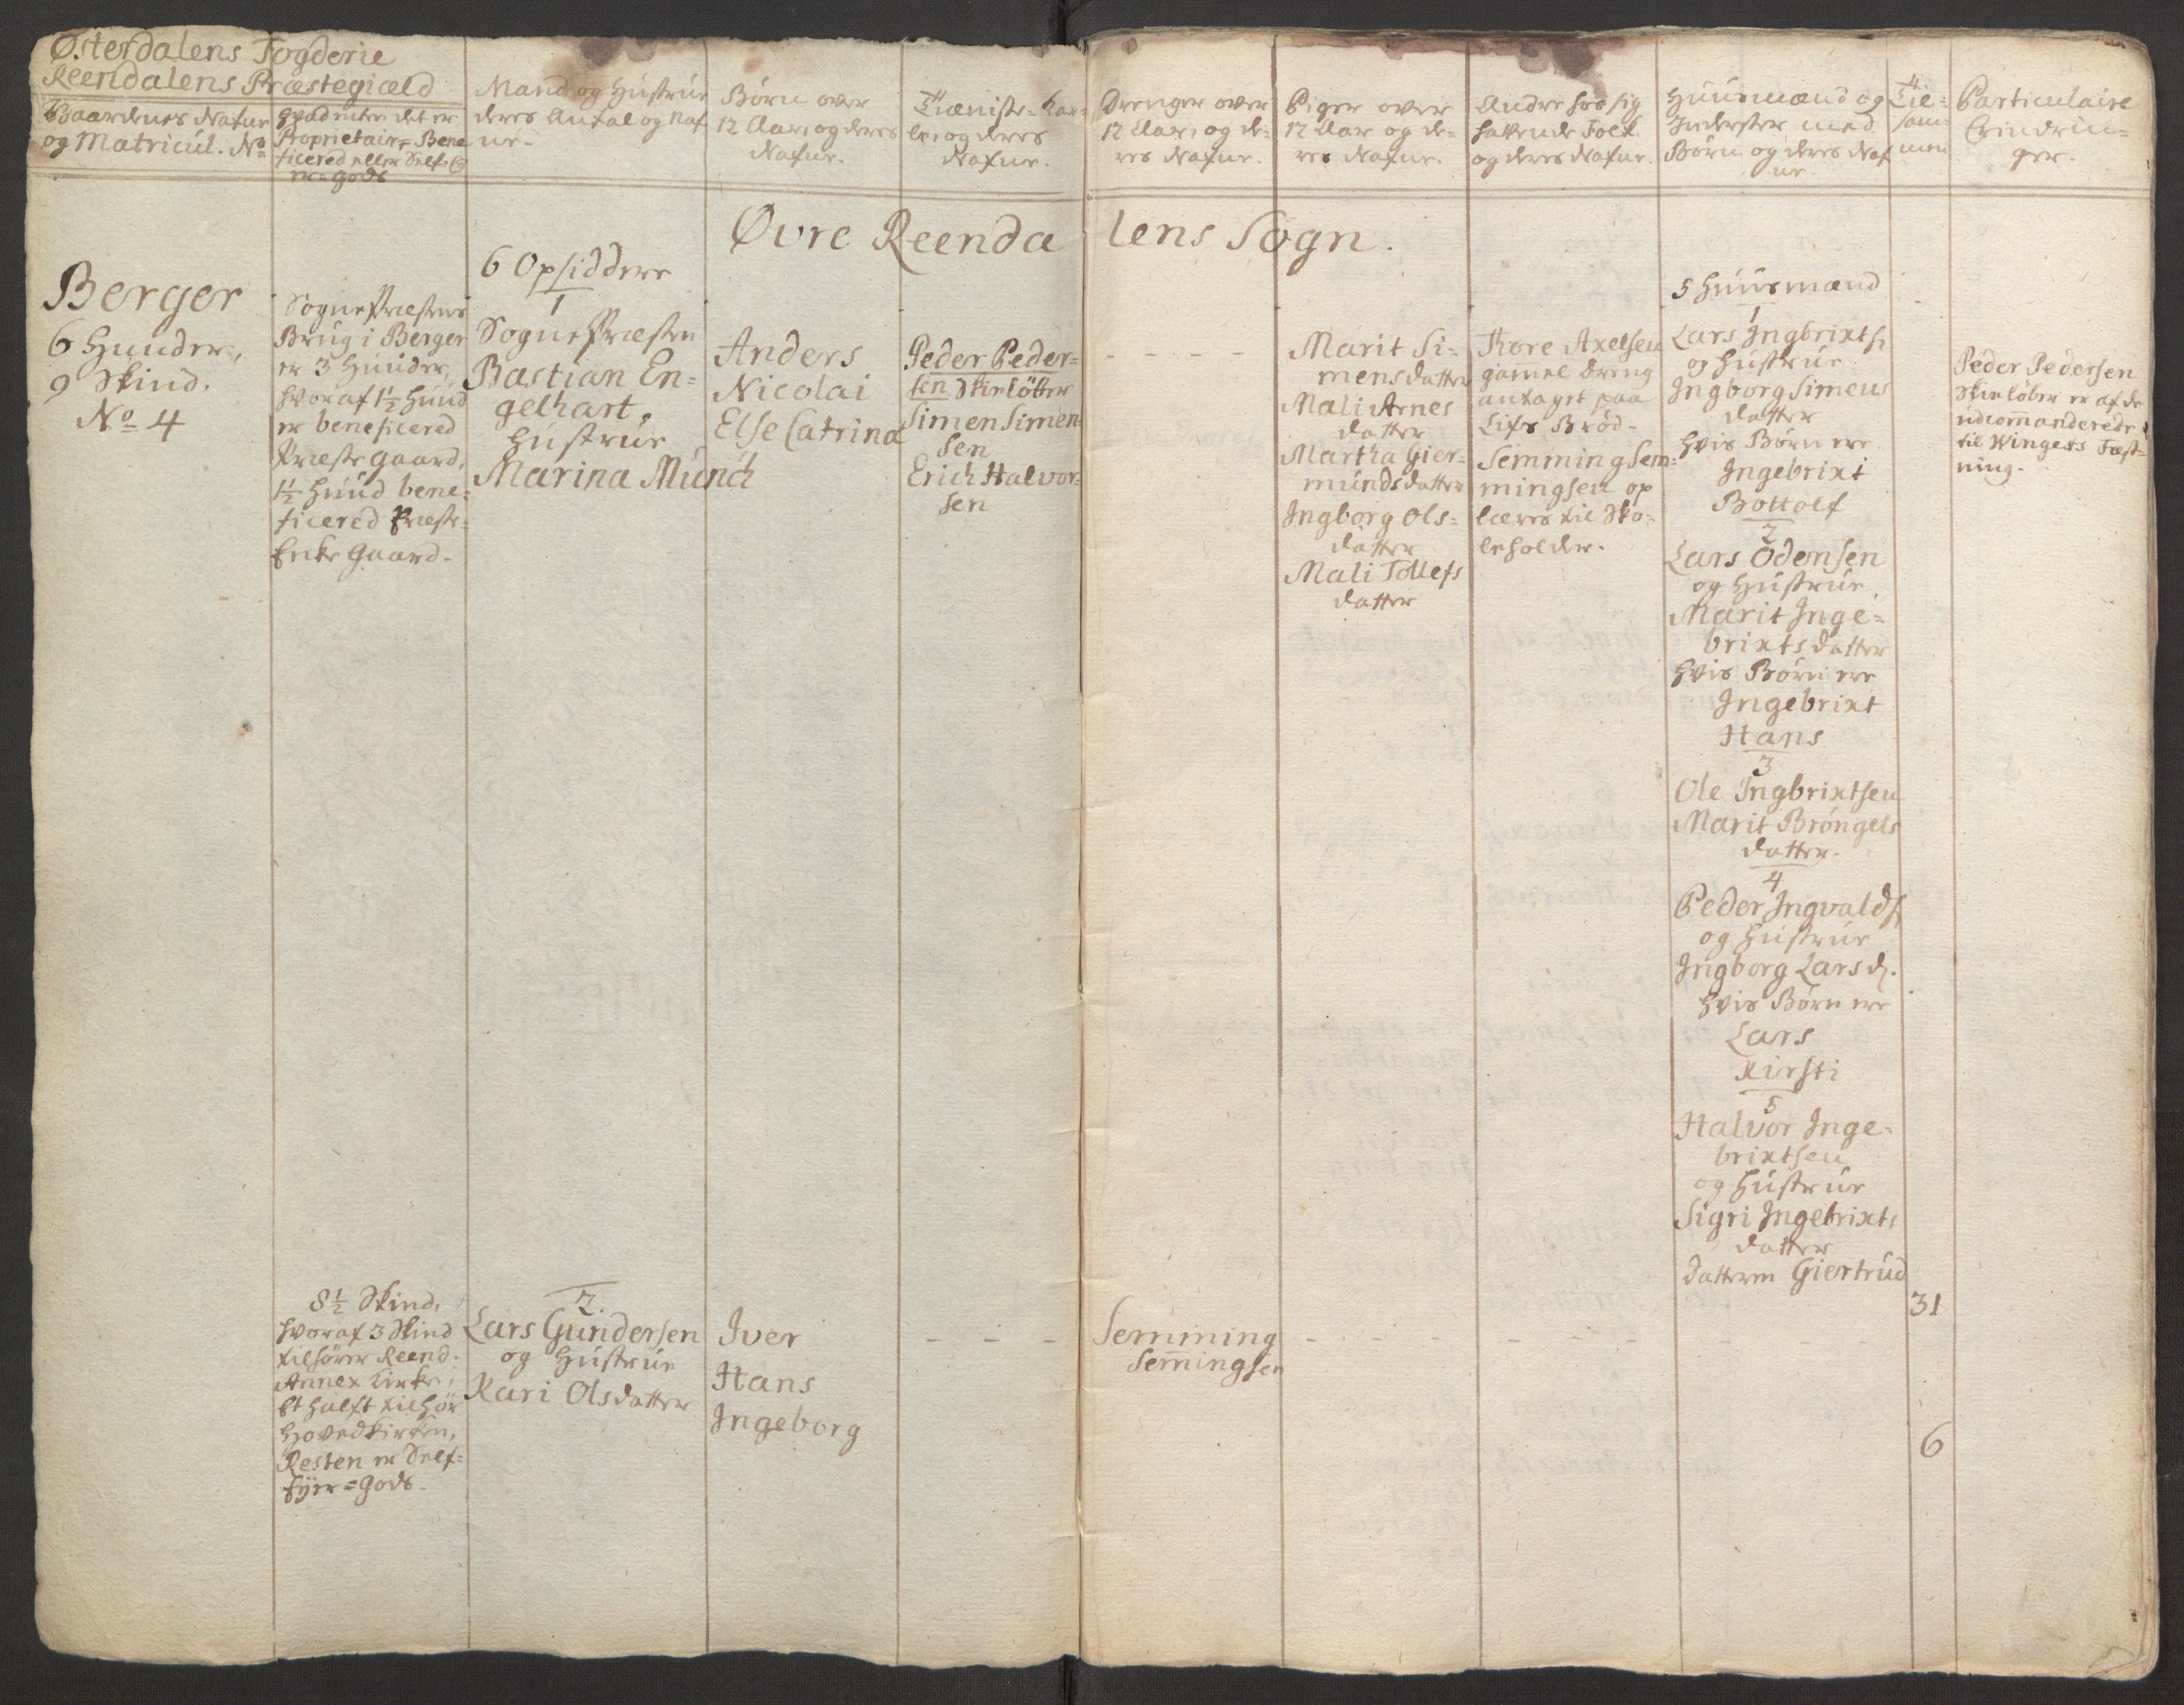 Østerdalens Fogderie
Reendalens Præstegiæld
Gaardenes Nafne
og Matricul. No
Hvad enten det er
Proprietair= Bene
ficered eller Self-Ey
er=gods
Mand og Hustrue
deres Antal og Naf
ne.
Børn over
12 Aar, og deres
Nafne.
Tieniste=Kar=
le, og deres
Nafne.
Drenger over
12 Aar, og de=
res Nafne.
Piger over
12 Aar og de=
res Nafne.
Andre hos sig
havende Folk
og deres Nafne.
Huusmænd og
Inderster med
Børn og deres Naf
ne.
Til=
sam=
men
Particulaire
Erindrin=
ger.
Øvre Reenda lens Sogn.
Berger
6 Hunder,
9 Skind.
No 4
Sogne Præstens
Brug i Berger
er 3 Hunder,
hvoraf 1½ Hund
er beneficered
Præste gaard,
1½ Hund bene=
ficered Præste=
Enke Gaard.
6 Opsiddere
1
Sogne Præsten
Bastian En=
gelhart.
Hustrue
Marina Münch
Anders
Nicolai
Else Catrina
Peder Peder=
sen Skieløber
Simen Simen
sen
Erich Halvor=
sen
- - - -
Marit Si=
mens datter
Mali Arnes
datter
Martha Gier=
munds datter
Ingborg Ols=
datter
Mali Tollefs
datter
Thore Axelsen
gamel Dreng
antaget paa
Lifs Brød.
Semming Sem=
mingsen op
læres til Sko=
leholder.
5 Huusmænd
1
Lars Ingbrixts.
og Hustrue
Ingborg Simens
datter
hvis Børn ere
Ingebrixt
Bottolf
2
Lars Odensen
og Hustrue
Marit Inge=
brixts datter
hvis Børn ere
Ingebrixt
Hans
3
Ole Ingbrixtsen
Marit Brøngels
datter.
4
Peder Ingvalds.
og Hustrue
Ingborg Lars d.
hvis Børn ere
Lars
Kirsti
5
Halvor Inge=
brixtsen
og Hustrue
Sigri Ingebrixts
datter
Datteren Giertrud
31
Peder Pedersen
Skieløber er af de
udcommanderede
til Wingers Fæst=
ning.
8½ Skind,
hvoraf 3 Skind
tilhører Reend.
Annex Kirke,
Et halft tilhør
Hovedkirken,
Resten er Self=
Eyer=Gods.
2.
Lars Gundersen
og Hustrue
Kari Olsdatter
Iver
Hans
Ingeborg
- - -
Semming
Semingsen
- - - - - - - - -
6